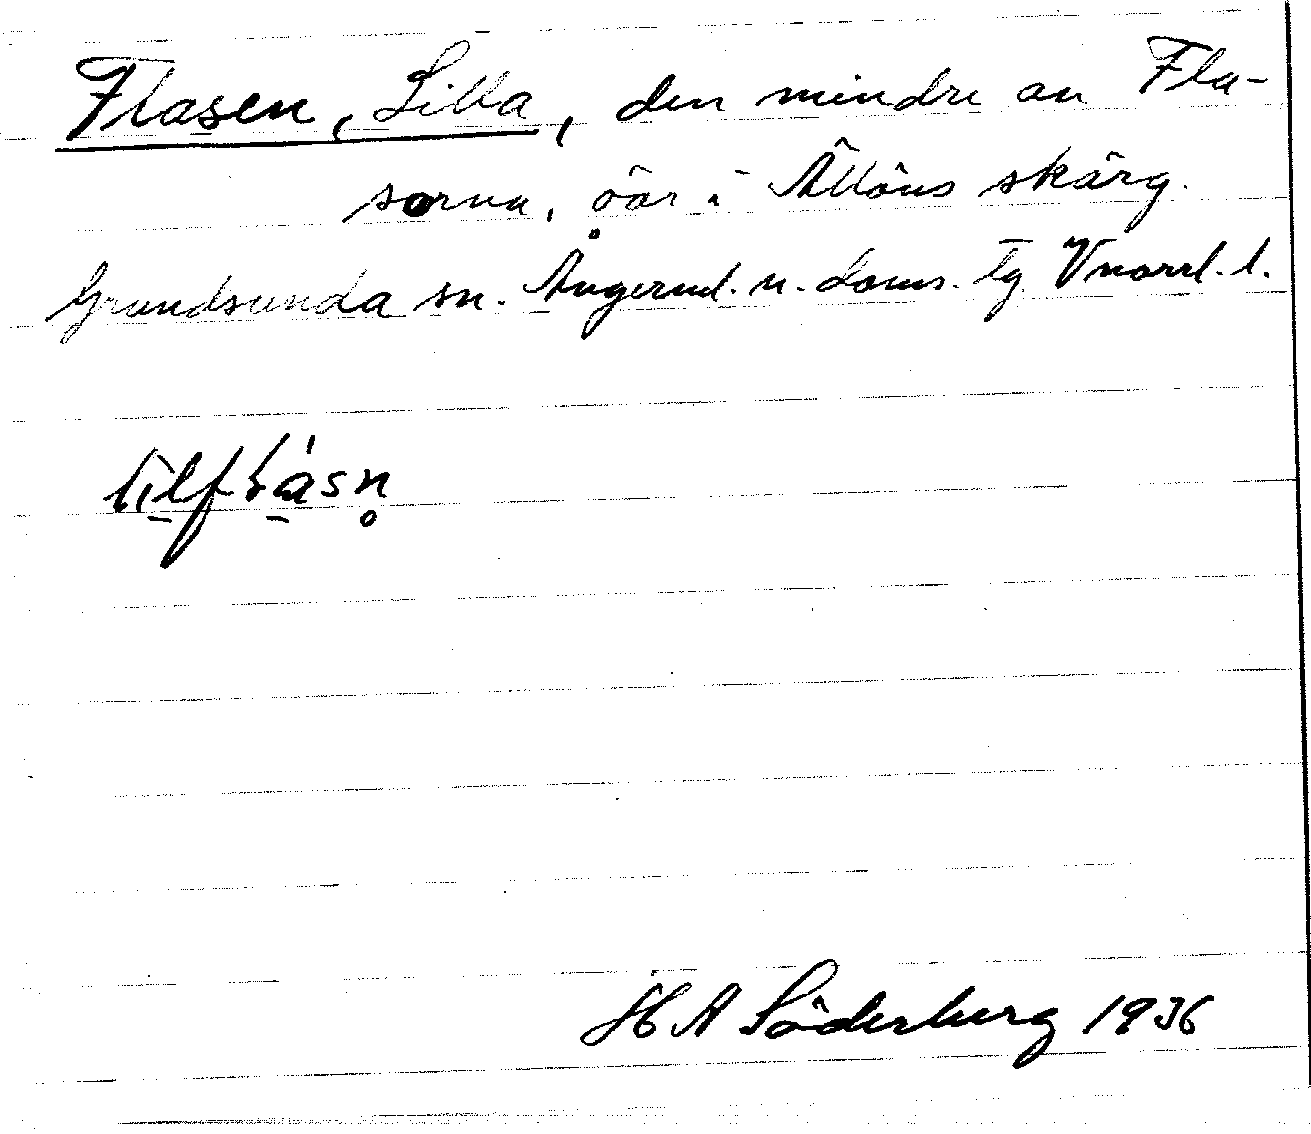 Flasen, Lilla, den mindre av Fla-
sorna, öar i Ällöns skärg.
Grundsunda sn. Ångerml. n. doms. tg Vnorrl. l.
H A Söderberg 1936